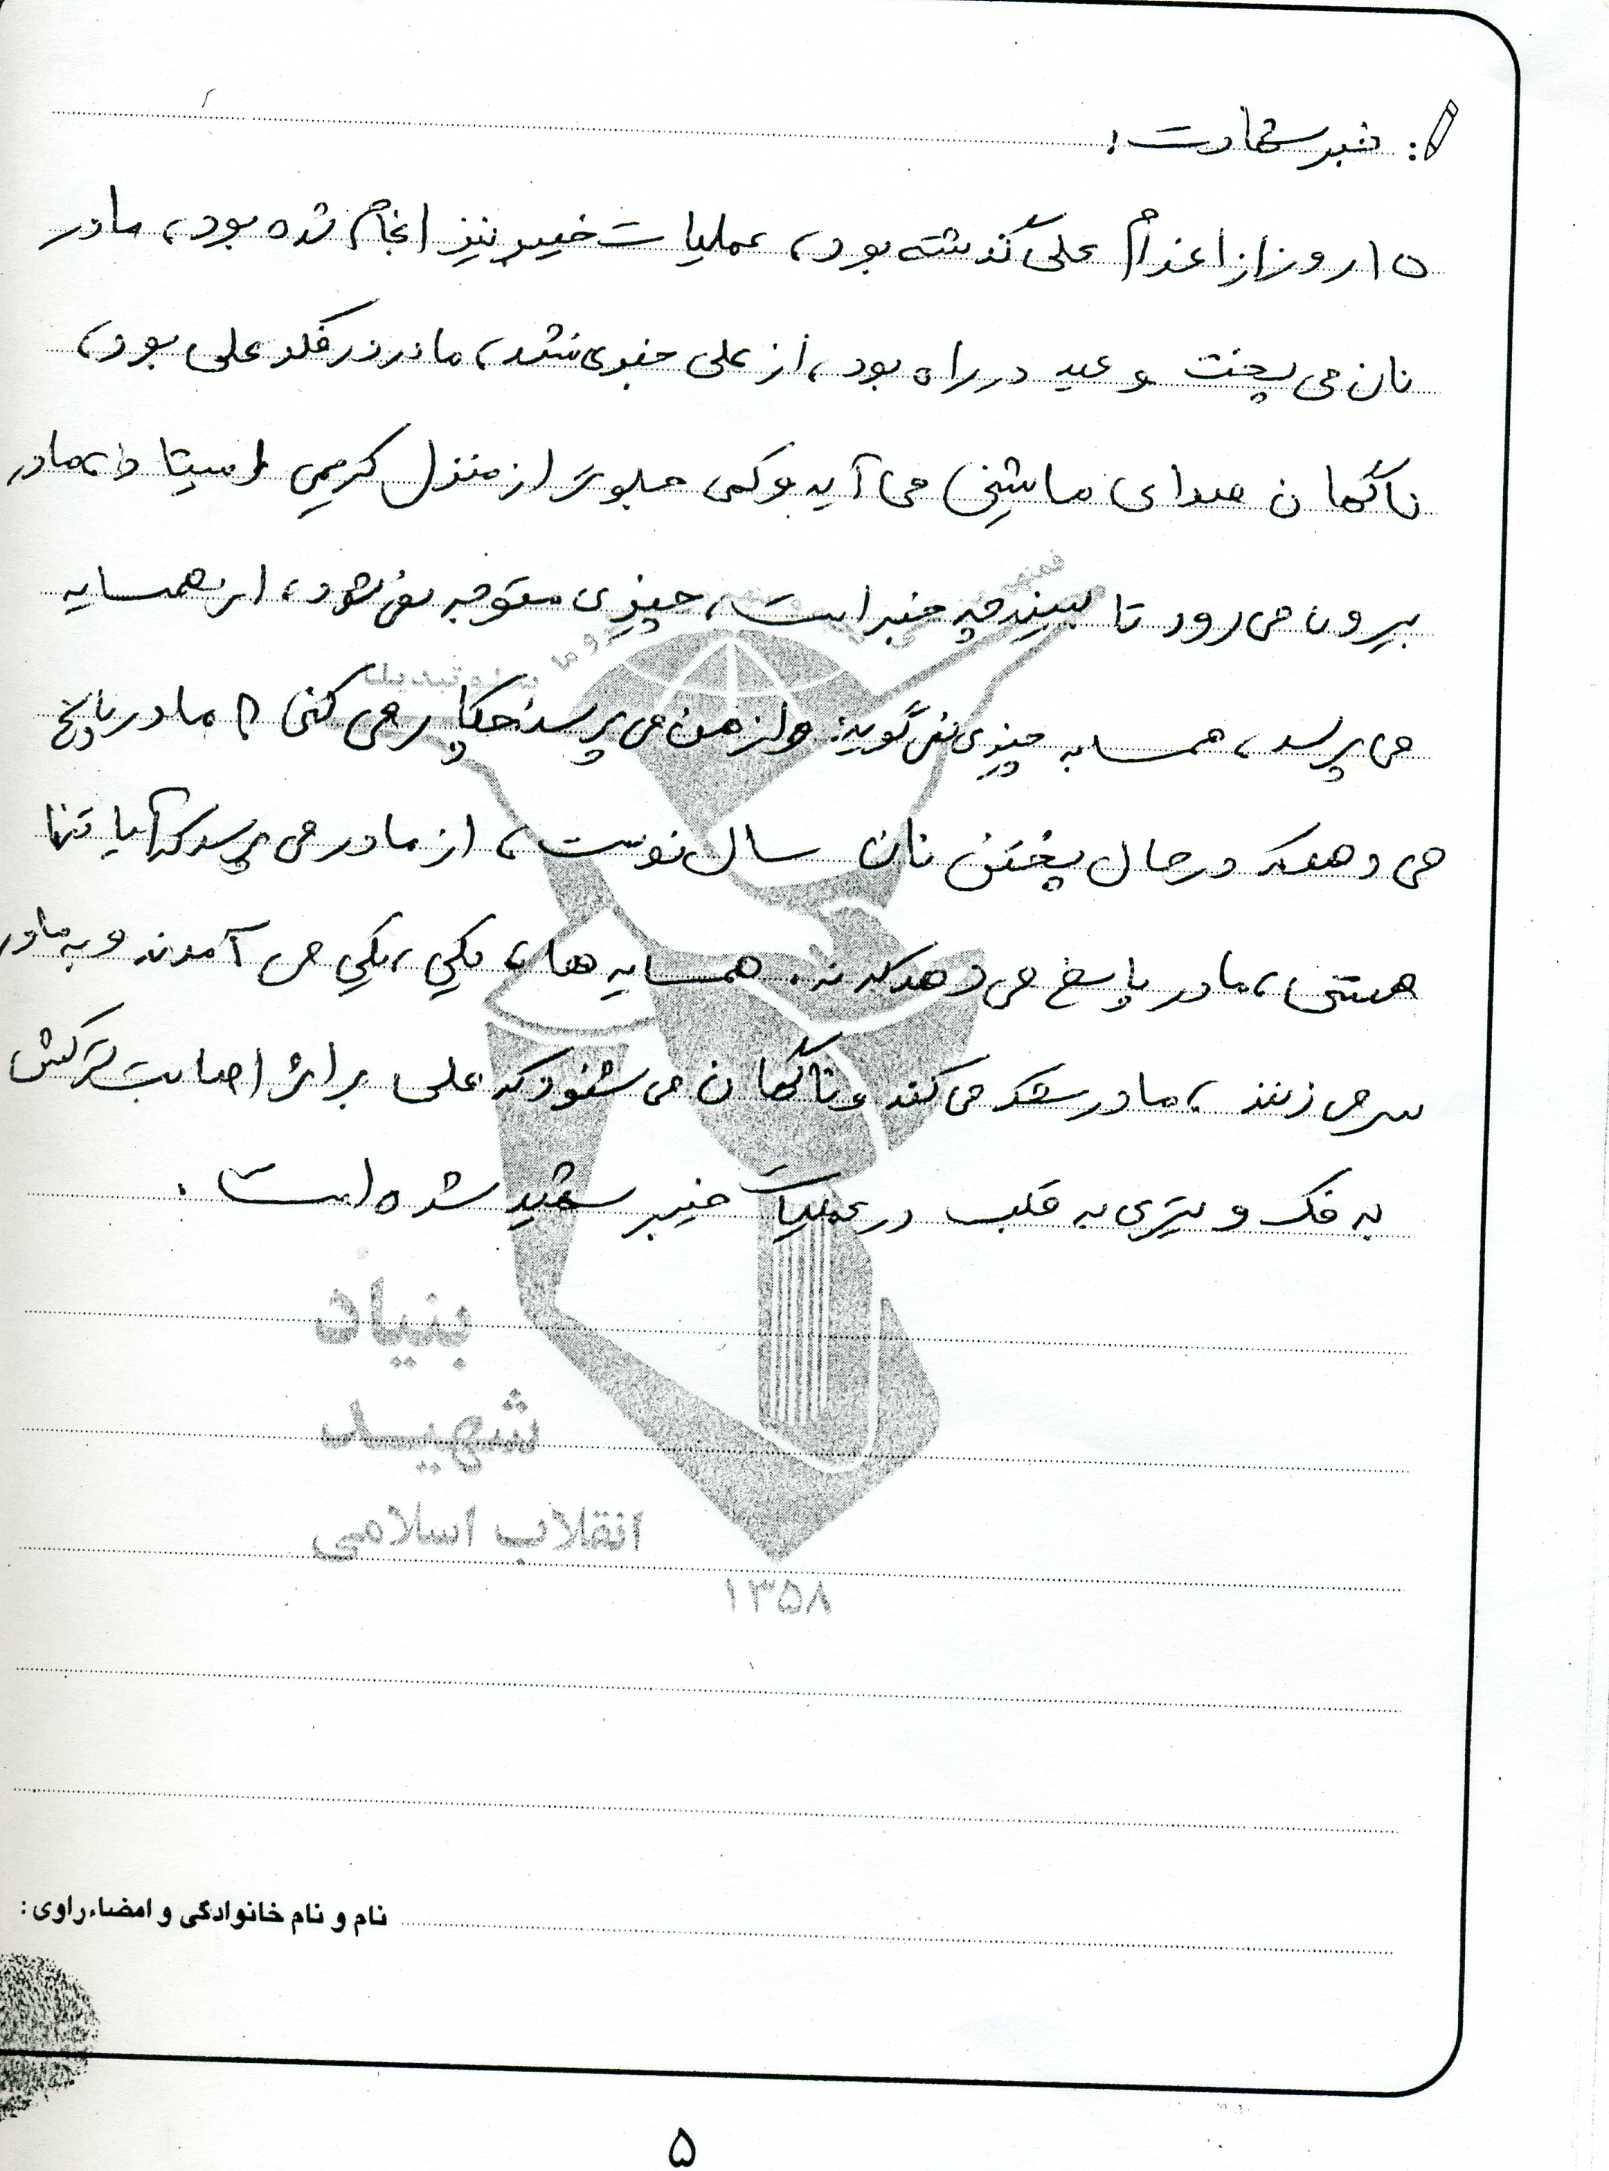 خبر شهادت:
۱۵ روز از اعزام علی گذشته بود، عملیات خیبر نیز انجام شده بود، مادر
نان می پخت و عید در راه بود، از علی خبری نشد، مادر در فکر علی بود،
ناگهان صدای ماشینی می آید و کمی جلوتر از منزل کریمی می‌ایستاد، مادر
بیرون می رود تا ببیند چه خبر است، چیزی متوجه نمی شود، از همسایه
می پرسد، همسایه چیزی نمی گوید: و از من می پرسد چکار می کنی؟ مادر پاسخ
می دهد که در حال پختن نان سال نو است، از مادر می پرسد که آیا تنها
هستی، مادر پاسخ می دهد که نه. همسایه ها، یکی، یکی می آمدند و به مادر
سر می زنند، مادر شک می کند و ناگهان می شنود که علی بر اثر اصابت ترکش
به فک و تیری به قلب در عملیات خیبر شهید شده است.
بنیاد
شهید
انقلاب اسلامی
۱۳۵۸
نام و نام خانوادگی و امضاء راوی:
۵